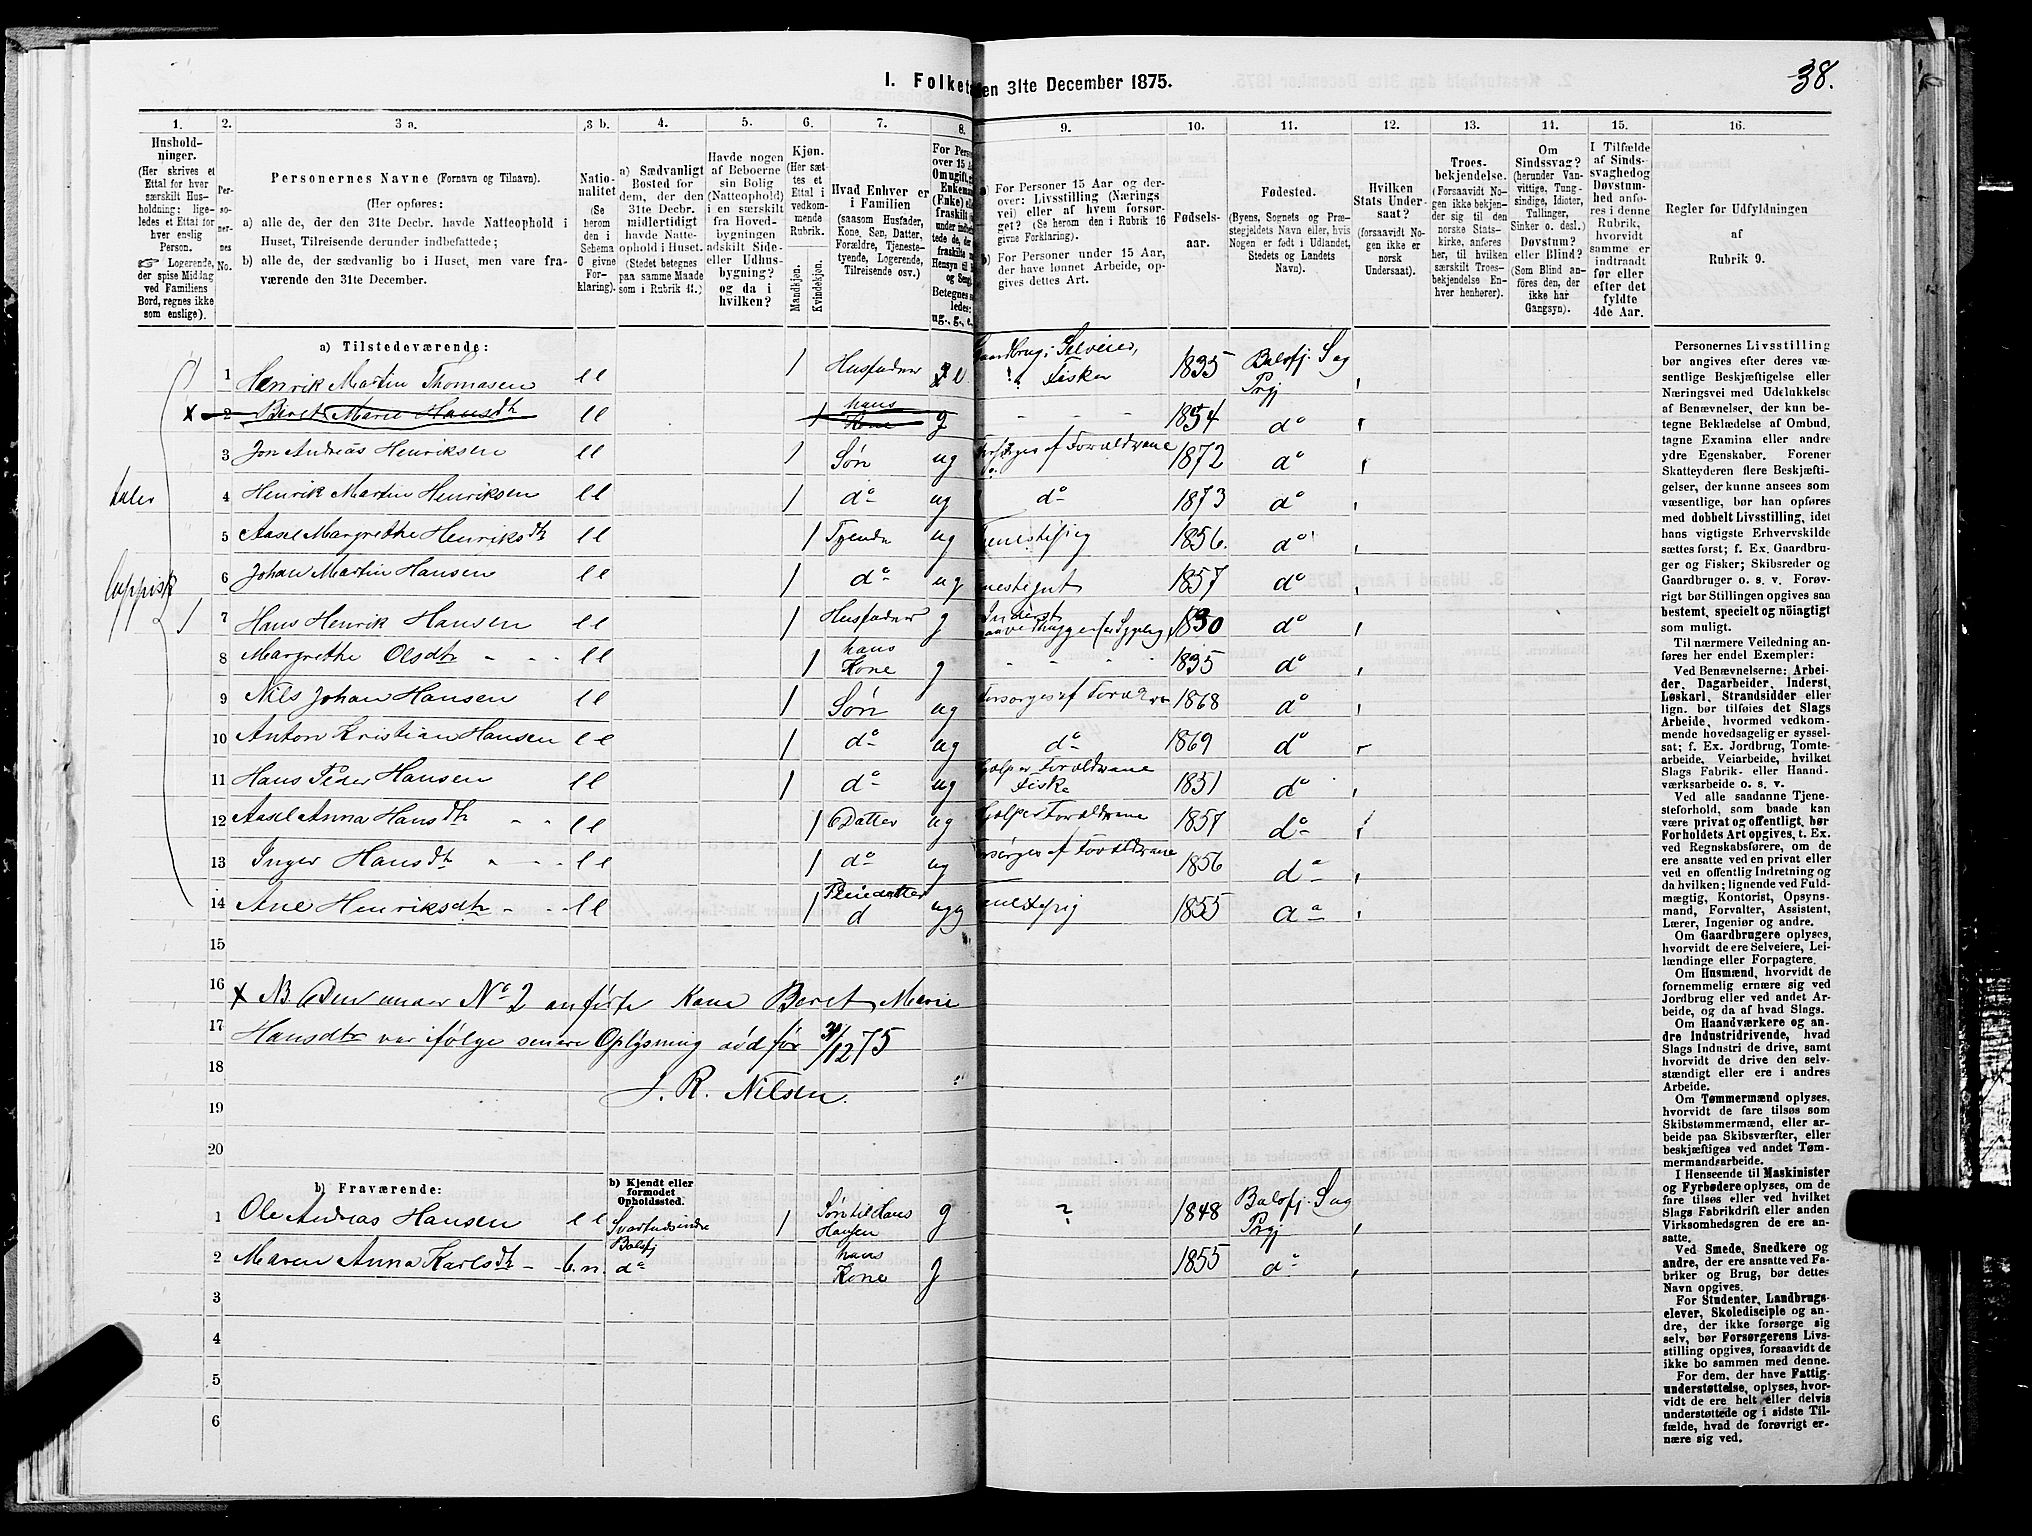 38.
I. Folketæ
en 31te December 1875.
1. 2. 3 a. 3 b. 4. 5. 6. 7. 8. 9. 10. 11. 12. 13. 14. 15. 16.
Hushold-
ninger.
(Her skrives et
Ettal for hver
særskilt Hus-
holdning; lige-
ledes et Ettal for
hver enslig
Person.
☞ Logerende,
der spise Middag
ved Familiens
Bord, regnes ikke
som enslige).
Per-
so-
ner-
nes
No.
Personernes Navne (Fornavn og Tilnavn).
(Her opføres:
a) alle de, der den 31te Decbr. havde Natteophold i
Huset, Tilreisende derunder indbefattede;
b) alle de, der sædvanlig bo i Huset, men vare fra-
værende den 31te December.
Natio-
nalitet
(Se
herom
den i
Schema
C givne
For-
klaring).
a) Sædvanligt
Bosted for
dem, der den
31te Decbr.
midlertidigt
havde Natte-
ophold i Huset.
(Stedet betegnes
paa samme Maade
som i Rubrik 11.)
Havde nogen
af Beboerne
sin Bolig
(Natteophold)
i en særskilt
fra Hoved-
bygningen
adskilt Side-
eller Udhus-
bygning?
og da i
hvilken?
Kjøn.
(Her sæt-
tes et
Ettal i
vedkom-
mende
Rubrik.
Mandkjøn.
Kvindekjøn.
Hvad Enhver er
i Familien
(saasom Husfader,
Kone, Søn, Datter,
Forældre, Tjeneste-
tyende, Logerende,
Tilreisende osv.)
a) For Personer 15 Aar og der-
over: Livsstilling (Nærings
vei) eller af hvem forsør-
get? (Se herom den i Rubrik 16
givne Forklaring).
b) For Personer under 15 Aar,
der have lønnet Arbeide, op-
gives dettes Art.
Fødsels-
aar.
Fødested.
(Byens, Sognets og Præ-
stegjeldets Navn eller, hvis
Nogen er født i Udlandet,
Stedets og Landets
Navn).
Hvilken
Stats Under-
saat?
(forsaavidt No-
gen ikke er
norsk
Undersaat).
Troes-
bekjendelse.
(Forsaavidt No-
gen ikke bekjen-
der sig til den
norske Stats-
kirke, anføres
her, til hvilken
særskilt Troes-
bekjendelse En-
hver henhører).
Om
Sindssvag?
(herunder Van-
vittige, Tung-
sindige, Idioter,
Tullinger,
Sinker o. desl.)
Døvstum?
eller Blind?
(Som Blind an-
føres den, der
ikke har
Gangsyn).
I Tilfælde
af Sinds-
svaghed og
Døvstum-
hed anfø-
res i denne
Rubrik,
hvorvidt
samme er
indtraadt
før eller
efter det
fyldte
4de Aar.
Regler for Udfyldningen
af
Rubrik 9.
a) Tilstedeværende:
1 Henrik Martin Thomasen l l 1 Husfader e Gaardbrug. Selveier, Fisker 1835 Balsfj. Sog Prgj
x 2 Beret Marie Hansdtr l l 1 hans Kone g - - - 1854 do
3 Jon Andreas Henriksen l l 1 Søn ug Forsørges af Forældrene 1872 do
4 Henrik Martin Henriksen l l 1 do ug do 1873 do
5 Aasel Margrethe Henriksdtr l l 1 Tyende ug Tjenestepig 1856. do
6 Johan Martin Hansen l l 1 do ug nestegut 1857 do
7 1 Hans Henrik Hansen l l 1 Husfader g Inderst 1830 do
8 Margrethe Olsdtr - - - l l 1 hans Kone g - - - 1835 do
9 Nils Johan Hansen l l 1 Søn ug Forsørges af Foræld 1868 do
10 Anton Kristian Hansen l l 1 do ug do 1869 do
11 Hans Peder Hansen l l 1 do ug Hjælper Forældrene Fiske 1851 do
12 Aasel Anna Hansdtr - - l l 1 Datter ug Hjælper Forældrene 1857 do
13 Inger Hansdtr - - - l l 1 do ug Forsørges af Forældrene 1856 do
14 Ane Henriksdtr - - l l 1 Pleiedatter ug nestepig 1855 do
15
16 x NB Den under No 2 anførte Kone Beret Marie
17 Hansdtr var ifølge senere Oplysning død før 31/12 75
18 J. R. Nilsen.
19
20
taler
lappisk
b) Fraværende:
b) Kjendt eller
formodet
Opholdssted.
1 Ole Andreas Hansen l l Balsfj 1 Søn til Hans Hansen g ? 1848 Balsfj. Sog Prgj
2 Maren Anna Karlsdtr - b. n. do hans Kone g 1855 do
3
4
5
6
Personernes Livsstilling
bør angives efter deres væ-
sentlige Beskjæftigelse eller
Næringsvei med Udelukkelse
af Benævnelser, der kun be-
tegne Beklædelse af Ombud,
tagne Examina eller andre
ydre Egenskaber. Forener
Skatteyderen flere Beskjæfti-
gelser, der kunne ansees som
væsentlige, bør han opføres
med dobbelt Livsstilling, idet
hans vigtigste Erhvervskilde
sættes først; f. Ex. Gaardbru-
ger og Fisker; Skibsreder og
Gaardbruger o. s. v. Forøv-
rigt bør Stillingen opgives saa
bestemt, specielt og nöiagtigt
som muligt.
Til nærmere Veiledning an-
føres her endel Exempler:
Ved Benævnelserne: Arbei-
der, Dagarbeider, Inderst,
Løskarl, Strandsidder eller
lign. bør tilføies det Slags
Arbeide, hvormed vedkom-
mende hovedsagelig er syssel-
sat; f. Ex. Jordbrug, Tomte-
arbeide, Veiarbeide, hvilket
Slags Fabrik- eller Haand-
værksarbeide o. s. v.
Ved alle saadanne Tjene-
steforhold, som baade kan
være privat og offentligt, bør
Forholdets Art opgives, t. Ex.
ved Regnskabsførere, om de
ere ansatte ved en privat eller
ved en offentlig Indretning og
da hvilken; lignende ved Fuld-
mægtig, Kontorist, Opsyns-
mand, Forvalter, Assistent,
Lærer, Ingeniør og andre.
Om Gaardbrugere oplyses,
hvorvidt de ere Selveiere, Lei-
lændinge eller Forpagtere.
Om Husmænd, hvorvidt de
fornemmelig ernære sig ved
Jordbrug eller ved andet Ar-
beide, og da af hvad Slags.
Om Haandværkere og an-
dre Industridrivende, hvad
Slags Industri de drive, samt
hvorvidt de drive den selv-
stændigt eller ere i andres
Arbeide.
Om Tømmermænd oplyses,
hvorvidt de fare tilsøs som
Skibstømmermænd, eller ar-
beide paa Skibsværfter, eller
beskjæftiges ved andet Tøm-
mermandsarbeide.
I Henseende til Maskinister
og Fyrbødere oplyses, om de
fare tilsøs eller ved hvilket
Slags Fabrikdrift eller anden
Virksomhedsgren de ere an-
satte.
Ved Smede, Snedkere og
andre, der ere ansatte ved Fa-
briker og Brug, bør dettes
Navn opgives.
For Studenter, Landbrugs-
elever, Skoledisciple og an-
dre, der ikke forsørge sig
selv, bør Forsørgerens Livs-
stilling opgives, forsaavidt de
ikke bo sammen med denne.
For dem, der have Fattig-
understøttelse, oplyses, hvor-
vidt de ere helt eller delvis
understøttede og i sidste Til-
fælde, hvad de forøvrigt er-
nære sig ved.